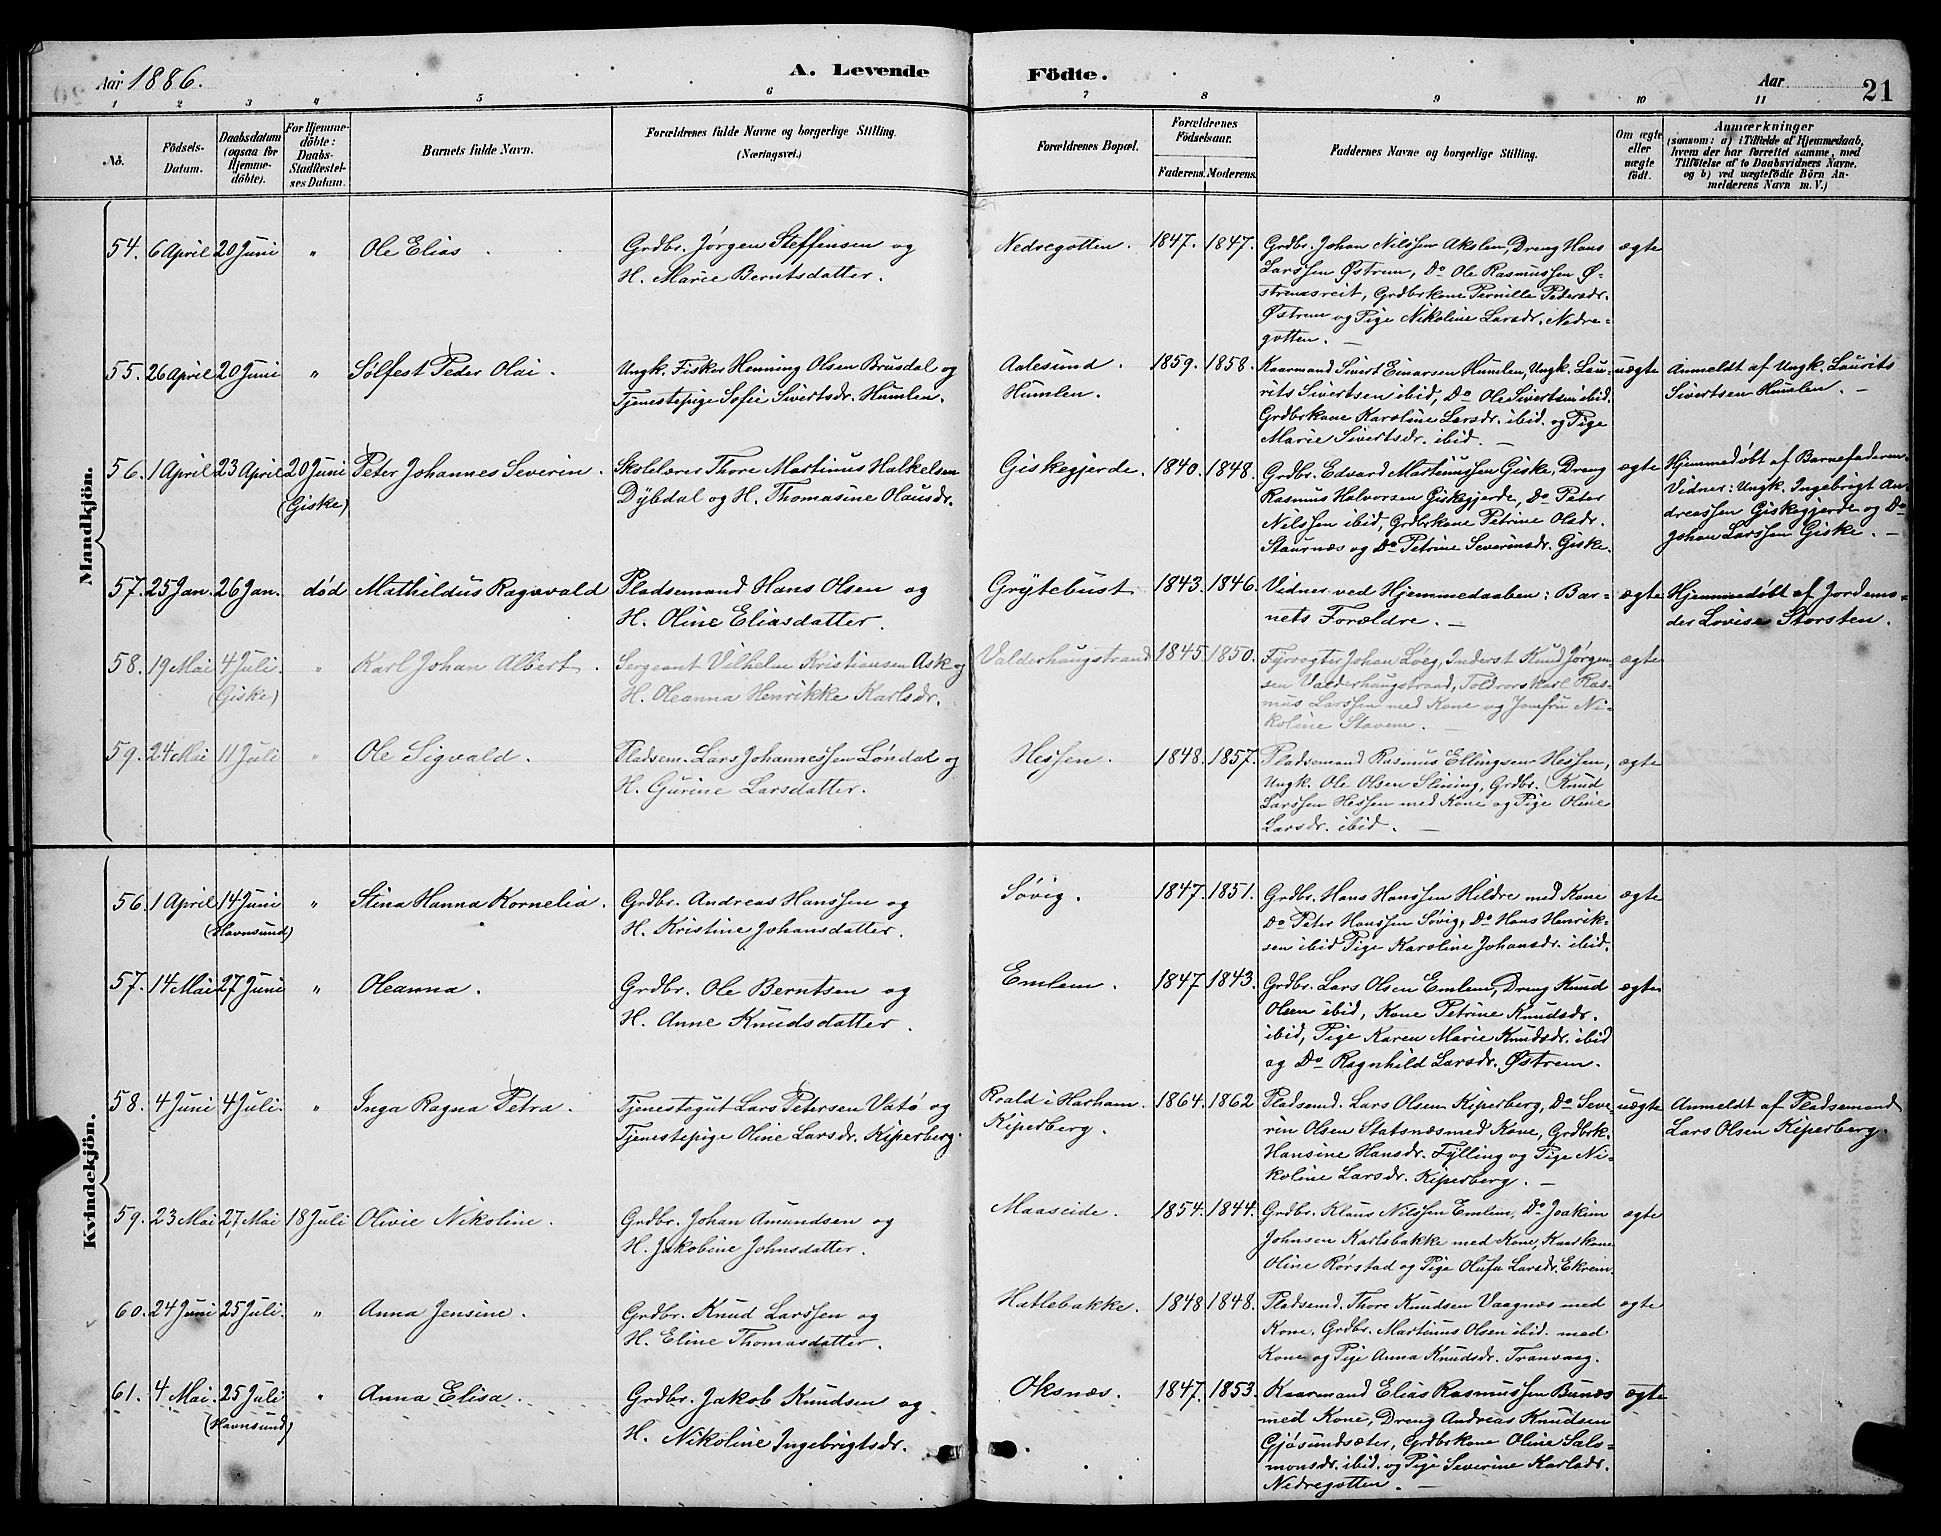 Aar 1886. A. Levende Födte. Aar 21
1 2 3 4 5 6 7 8 9 10 11
No.
Födsels-Datum.
Daabsdatum (ogsaa for Hjemme-döbte).
For Hjemme-döbte: Daabs-Stadfestel-ses Datum.
Barnets fulde Navn.
Forældrenes fulde Navne og borgerlige Stilling. (Næringsvei.)
Forældrenes Bopæl.
Forældrenes Födselsaar. Faderens. Moderens.
Faddernes Navne og borgerlige Stilling.
Om ægte eller uægte födt.
Anmærkninger
(saasom: a) i Tilfælde af Hjemmedaab,
hvem der har forrettet samme, med
Tilföielse af to Daabsvidners Navne.
og b) ved uægtefödte Börn An-
melderens Navn m. V.)
Mandkjön.
54. 6 April 20 Juni " Ole Elias. Grdbr. Jørgen Steffensen og Nedregotten. 1847. 1847. Grdbr. Johan Nilssen Akslen, Dreng Hans ægte
H. Marie Berntsdatter. Larssen Østrem, Do Ole Rasmussen Ø-
stremsreit, Grdbrkone Pernille Pedersdr.
Østrem og Pige Nikoline Larsdr. Nedre-
gotten. —
55. 26 April 20 Juni " Sølfest Peder Olai. Ungk. Fisker Henning Olsen Brusdal og Aalesund. 1859. 1858. Kaarmand Sivert Einarsen Humlen, Ungk. Lau- uægte Anmeldt af Ungk. Laurits
Tjenestepige Sofie Sivertsdr. Humlen. Humlen. rits Sivertsen ibid, Do Ole Sivertsen ibid. Sivertsen Humlen. —
Grdbrkone Karoline Larsdr. ibid. og Pige
Marie Sivertsdr. ibid. —
56. 1 April 23 April 20 Juni Peter Johannes Severin. Skolelærer Thore Martinus Halkelsen Giskegjerde. 1840. 1848. Grdbr. Edvard Martinussen Giske, Dreng ægte Hjemmedøbt af Barnefaderen.
(Giske) Dybdal og H. Thomasine Olausdr. Rasmus Halvorsen Giskegjerde, Do Peter Vidner: Ungk. Ingebrigt An-
Nilssen ibid, Grdbrkone Petrine Olsdr. dreassen Giskegjerde og Do
Staurnæs og Do Petrine Severinsdr. Giske. Johan Larssen Giske. —
57. 25 Jan. 26 Jan. død Mathildus Ragnvald Pladsemand Hans Olsen og Grytebust 1843. 1846. Vidner ved Hjemmedaaben: Bar- ægte Hjemmedøbt af Jordemo-
H. Oline Eliasdatter. nets Forældre. — der Lovise Storsten.
58. 19 Mai 4 Juli. " Karl Johan Albert. Sergeant Vilhelm Kristiansen Ask og Valderhaugstrand 1845. 1850. Fyrvogter Johan Løeg, Inderst Knud Jørgen- ægte
(Giske) H. Oleanna Henrikke Karlsdr. sen Valderhaugstrand, Toldrorskarl Ras-
mus Larssen med Kone og Jomfru Ni-
koline Stavem. —
59. 24 Mai 11 Juli " Ole Sigvald. Pladsem. Lars Johannessen Løndal og Hessen. 1848. 1857. Pladsemand Rasmus Ellingsen Hessen, ægte
H. Gurine Larsdatter. Ungk. Ole Olsen Slining, Grdbr. Knud
Larssen Hessen med Kone og Pige Oline
Larsdr. ibid. —
Kvindekjön.
56. 1 April 14 Juni " Stina Hanna Kornelia. Grdbr. Andreas Hanssen og Søvig. 1847. 1851. Grdbr. Hans Hanssen Hildre med Kone ægte
(Havnsund) H. Kristine Johansdatter. Do Peter Hanssen Søvig, Do Hans Henrik-
sen ibid Pige Karoline Johansdr. ibid.
57. 14 Mai 27 Juni " Oleanna. Grdbr. Ole Berntsen og Emlem. 1847 1843. Grdbr. Lars Olsen Emlem, Dreng Knud ægte
H. Anne Knudsdatter. Olsen ibid, Kone Petrine Knudsdr.
ibid, Pige Karen Marie Knudsdr. ibid
og Do Ragnhild Larsdr. Østrem.
58. 4 Juni 4 Juli. " Inga Ragna Petra. Tjenestegut Lars Petersen Vatø og Roald i Harham. 1864. 1862 Pladsemd. Lars Olsen Kiperberg, Do Seve- uægte Anmeldt af Pladsemand
Tjenestepige Oline Larsdr. Kiperberg. Kiperberg. rin Olsen Statsnæs med Kone, Grdbrk. Lars Olsen Kiperberg.
Hansine Hansdr. Fylling og Pige Ni-
koline Larsdr. Kiperberg. —
59. 23 Mai 27 Mai 18 Juli Olivie Nikoline. Grdbr. Johan Amundsen og Maaseide. 1854. 1844. Grdbr. Klaus Nilssen Emlem, Do Joakim ægte
H. Jakobine Johnsdatter. Johnsen Karlsbakke med Kone, Kaarkone
Oline Rørstad og Pige Olufa Larsdr. Ekrem.
60. 24 Juni 25 Juli. " Anna Jensine. Grdbr. Knud Larssen og Hatlebakke. 1848 1848. Pladsemd. Thore Knudsen Vaagnæs med ægte
H. Eline Thomasdatter. Kone, Grdbr. Martinus Olsen ibid. med
Kone og Pige Anna Knudsdr. Tranvaag.
61. 4 Mai. 25 Juli " Anna Elisa. Grdbr. Jakob Knudsen og Oksnæs. 1847. 1853. Kaarmand Elias Rasmussen Bunæs ægte
(Havnsund) H. Nikoline Ingebrigtsdr. med Kone, Dreng Andreas Knudsen
Gjøsundsæter, Grdbrkone Oline Salo-
monsdr. ibid. og Pige Severine Karlsdr.
Nedregotten. —